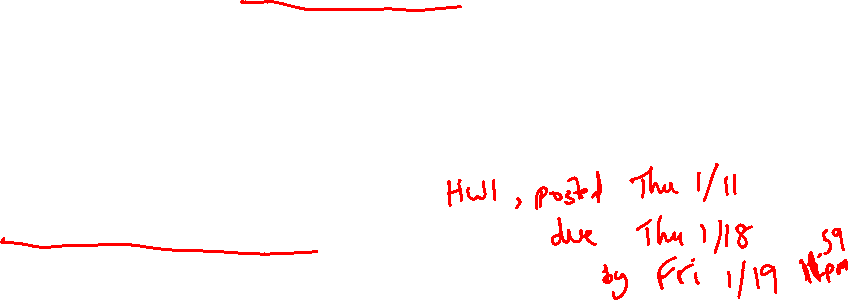 HW1, posted Thu 1/11
due Thu 1/18
by Fri 1/19 11:59 pm